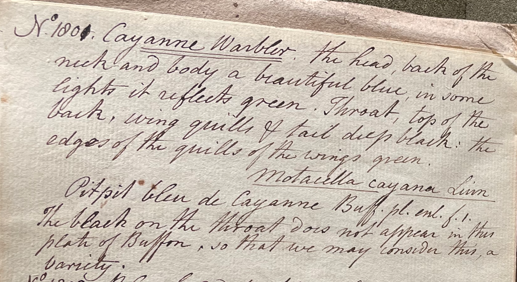 No. 1801. Cayanne Warbler. the head, back of the
neck and body a beautiful blue, in some
lights it reflects green. Throat, top of the
back, wing quills & tail deep black: the
edges of the quills of the wings green.
Motacilla cayana Linn
Pitpit bleu de Cayanne Buf. pl. enl. f. 1.
The black on the throat does not appear in this
plate of Buffon, so that we may consider this, a
variety.